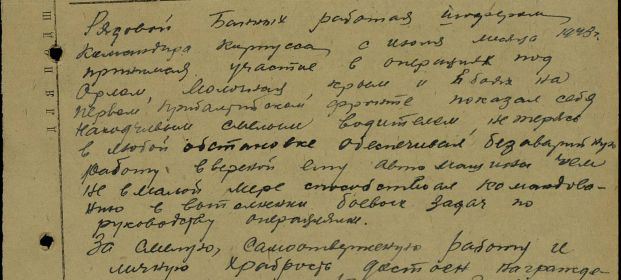 Рядовой Банных работая шофером
командира корпуса, с июня месяца 1943г.
принимая участие в операциях под
Орлом, Молочная, Крым и в боях на
первом Прибалтийском фронте показал себя
находчивым смелым водителем, не теряясь
в любой обстановке обеспечивал безаварийную
работу вверенной ему автомашины чем
не в малой мере способствовал командова-
нию в выполнении боевых задач по
руководству операциями.
За смелую, самоотверженную работу и
личную храбрость достоен награжде-